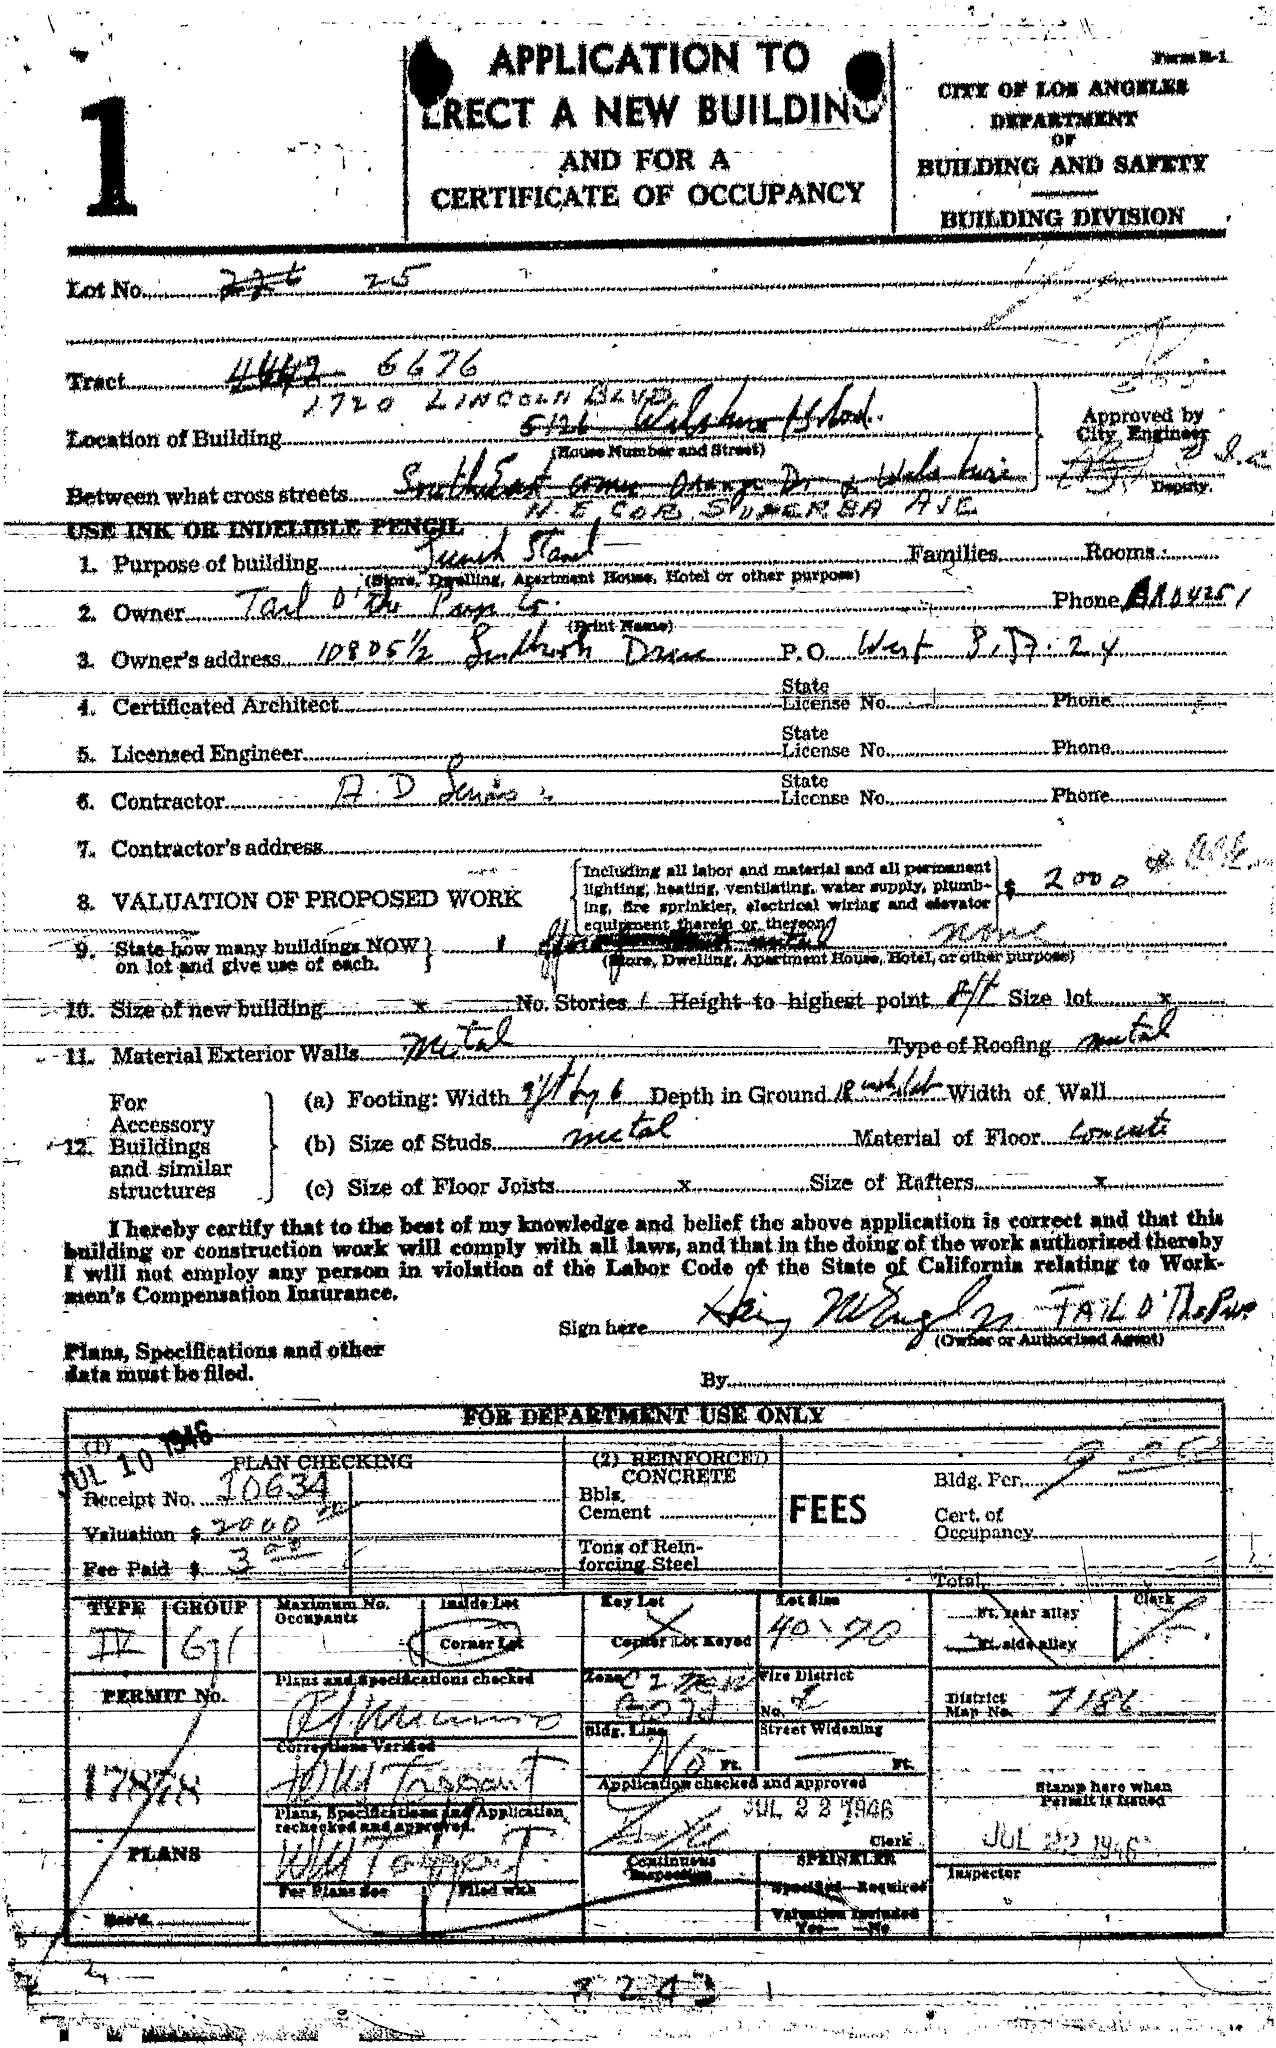 1
APPLICATION TO
ERECT A NEW BUILDING
AND FOR A
CERTIFICATE OF OCCUPANCY
Form B-1
CITY OF LOS ANGELES
DEPARTMENT
OF
BUILDING AND SAFETY
BUILDING DIVISION
Lot No. 226 25
Tract 4442 6676
1720 LINCOLN BLVD
Location of Building 5126 Wilshire Blvd.
(House Number and Street)
Approved by
City Engineer
Deputy.
Between what cross streets SouthEast corner Orange Dr & Wilshire
N.E COR SUPERBA AVE
USE INK OR INDELIBLE PENCIL
1. Purpose of building Lunch Stand Families Rooms
(Store, Dwelling, Apartment House, Hotel or other purpose)
2. Owner Tail O' the Pup Co. Phone BR04251
(Print Name)
3. Owner's address 10805½ Drive P.O. West L.A. 24
4. Certificated Architect State License No. Phone
5. Licensed Engineer State License No. Phone
6. Contractor A. D State License No. Phone
7. Contractor's address
8. VALUATION OF PROPOSED WORK {Including all labor and material and all permanent lighting, heating, ventilating, water supply, plumbing, fire sprinkler, electrical wiring and elevator equipment therein or thereon} $ 2000
9. State how many buildings NOW on lot and give use of each. } 1 none
(Store, Dwelling, Apartment House, Hotel, or other purpose)
10. Size of new building x No. Stories 1 Height to highest point Size lot x
11. Material Exterior Walls Metal Type of Roofing metal
12. For Accessory Buildings and similar structures
(a) Footing: Width by 6 Depth in Ground 18 Width of Wall
(b) Size of Studs metal Material of Floor concrete
(c) Size of Floor Joists x Size of Rafters x
I hereby certify that to the best of my knowledge and belief the above application is correct and that this
building or construction work will comply with all laws, and that in the doing of the work authorized thereby
I will not employ any person in violation of the Labor Code of the State of California relating to Work-
men's Compensation Insurance.
Sign here TAIL O' The Pup
(Owner or Authorized Agent)
Plans, Specifications and other
data must be filed.
By
FOR DEPARTMENT USE ONLY
JUL 10 1946
(1) PLAN CHECKING
Receipt No. 10634
Valuation $ 2000
Fee Paid $ 3
(2) REINFORCED CONCRETE
Bbls. Cement
Tons of Reinforcing Steel
FEES
Bldg. Per.
Cert. of Occupancy
Total
TYPE IV
GROUP G1
Maximum No. Occupants
Inside Lot
Corner Lot
Key Lot
Corner Lot Keyed
Lot Size 40 x 90
Ft. rear alley
Ft. side alley
Clerk
PERMIT No.
17878
Plans and Specifications checked
Zone C2
Fire District No. 2
District Map No. 7186
Corrections Verified
Bldg. Line No Ft.
Street Widening Ft.
Plans, Specifications and Application rechecked and approved.
Application checked and approved
JUL 22 1946
Clerk
Stamp here when
Permit is issued
JUL 22 1946
PLANS
Rec'd.
For Plans See
Filed with
Continuous Inspection
SPRINKLER
Specified—Required
Valuation Included
Yes— —No
Inspector